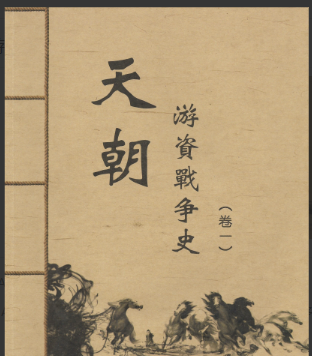 天朝
游資戰争史
（卷一）